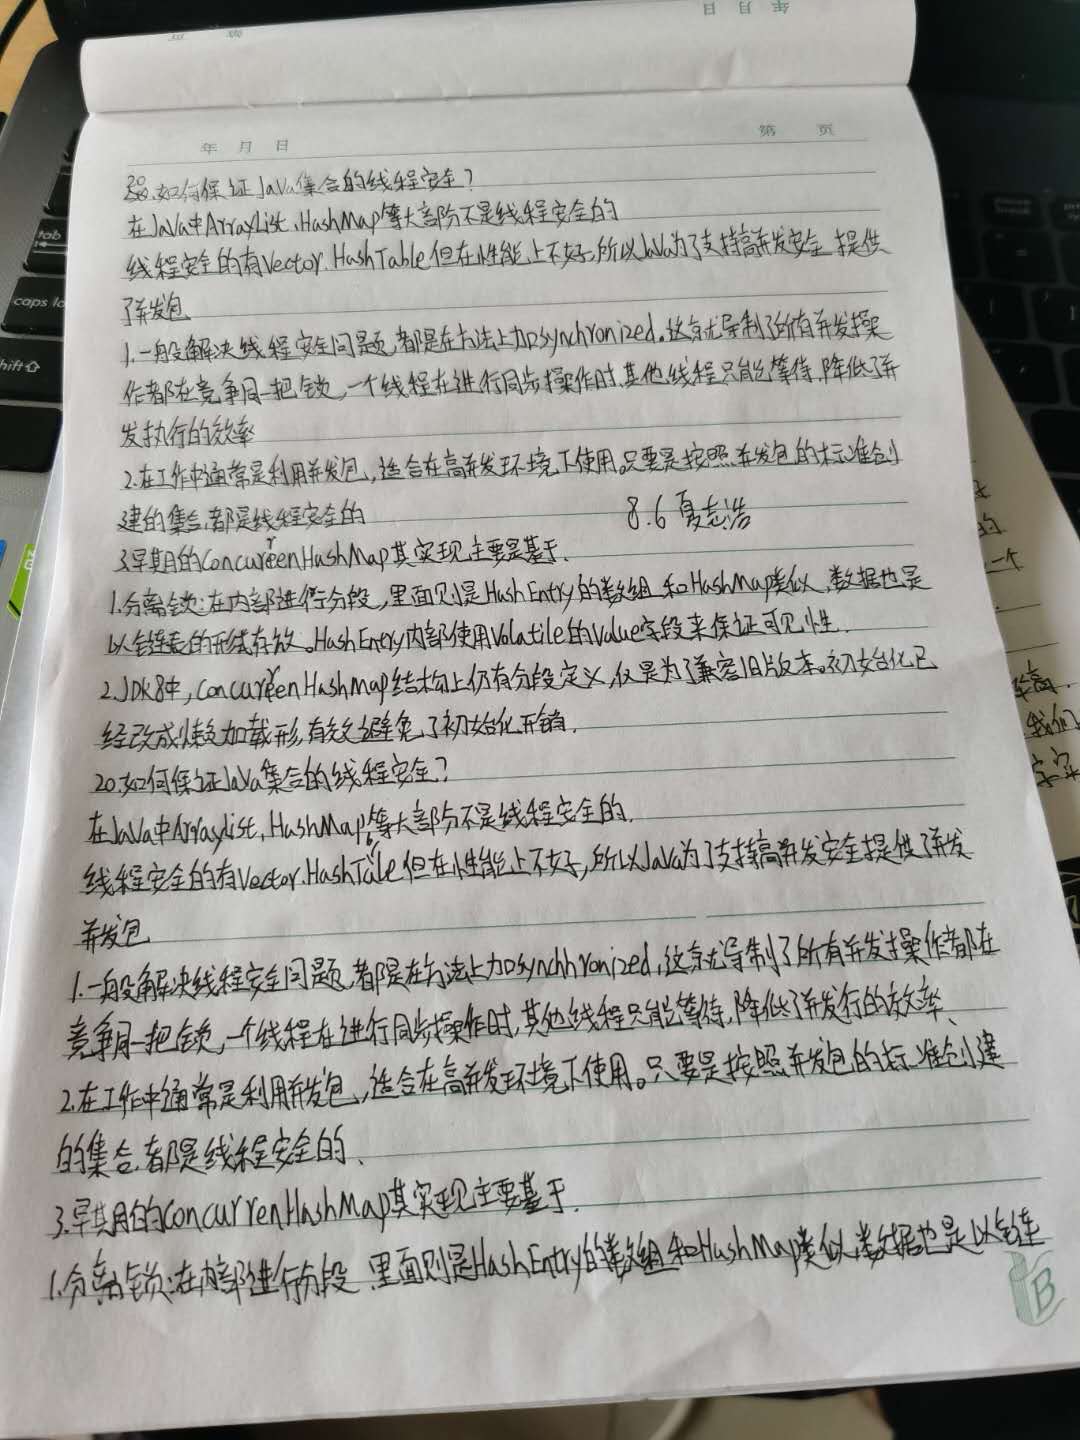 年 月 日
第 页
年 月 日 第 页
20.如何保证Java集合的线程安全?
在Java中ArrayList、HashMap等大部分不是线程安全的
线程安全的有Vector.HashTable但在性能上不好,所以Java为了支持高并发安全 提供
了并发包
1.一般解决线程安全问题,都是在方法上加synchronized。这就导制了所有并发操
作都在竞争同一把锁,一个线程在进行同步操作时,其他线程只能等待,降低了并
发执行的效率
2.在工作中通常是利用并发包,适合在高并发环境下使用。只要是按照并发包的标准创
建的集合,都是线程安全的
8.6 夏志浩
3.早期的ConcurrenHashMap其实现主要是基于.
1.分离锁:在内部进行分段,里面则是HashEntry的数组和HashMap类似,数据也是
以链表的形式存放。HashEntry内部使用Volatile的Value字段来保证可见性.
2.JDK8中,ConcurrenHashMap结构上仍有分段定义,仅是为了兼容旧版本。初始化已
经改成懒加载形,有效避免了初始化开销.
20.如何保证Java集合的线程安全?
在Java中ArrayList,HashMap等大部分不是线程安全的.
线程安全的有Vector.HashTable但在性能上不好,所以Java为了支持高并发安全提供了并发
并发包
1.一般解决线程安全问题,都是在方法上加synchhronized,这就导制了所有并发操作都在
竞争同一把锁,一个线程在进行同步操作时,其他线程只能等待,降低了并发行的效率、
2.在工作中通常是利用并发包,适合在高并发环境下使用。只要是按照并发包的标准创建
的集合,都是线程安全的、
3.早其用的ConcurrenHashMap其实现主要基于.
1.分离锁:在内部进行分段,里面则是HashEntry的数组和HashMap类似,数据也是以链
B
tab
caps lo
shift
的
一个
率高.
我们